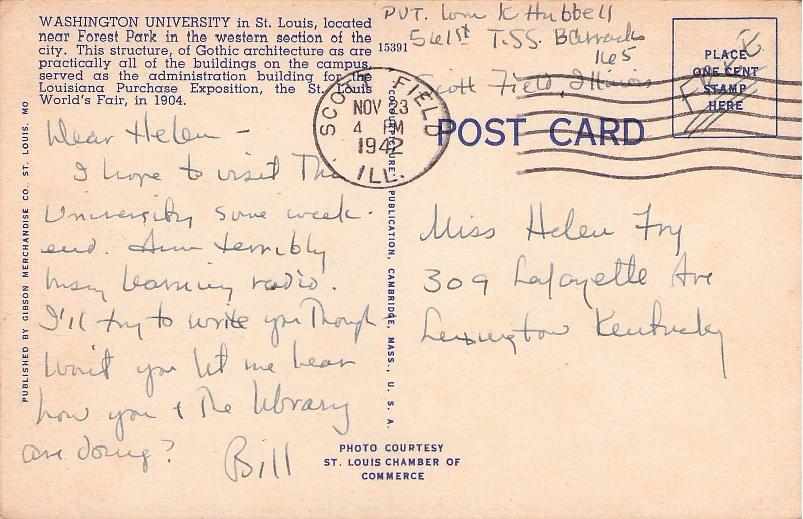 WASHINGTON UNIVERSITY in St. Louis, located
near Forest Park in the western section of the
city. This structure, of Gothic architecture as are
practically all of the buildings on the campus,
served as the administration building for the
Louisiana Purchase Exposition, the St. Louis
World's Fair, in 1904.
15391
PVT. Wm K Hubbell
561st T.SS. Barracks
165
Scott Field, Illinois
PLACE
ONE CENT
STAMP
HERE
FREE
SCOTT FIELD
NOV 23
4 PM
1942
ILL.
POST CARD
Dear Helen -
I hope to visit The
University some week-
end. Am terribly
busy learning radio.
I'll try to write you though
Won't you let me hear
how you & the library
are doing?
Bill
Miss Helen Fry
309 Lafayette Ave
Lexington Kentucky
PUBLISHED BY GIBSON MERCHANDISE CO. ST. LOUIS, MO
PUBLICATION, CAMBRIDGE, MASS., U. S. A.
PHOTO COURTESY
ST. LOUIS CHAMBER OF
COMMERCE